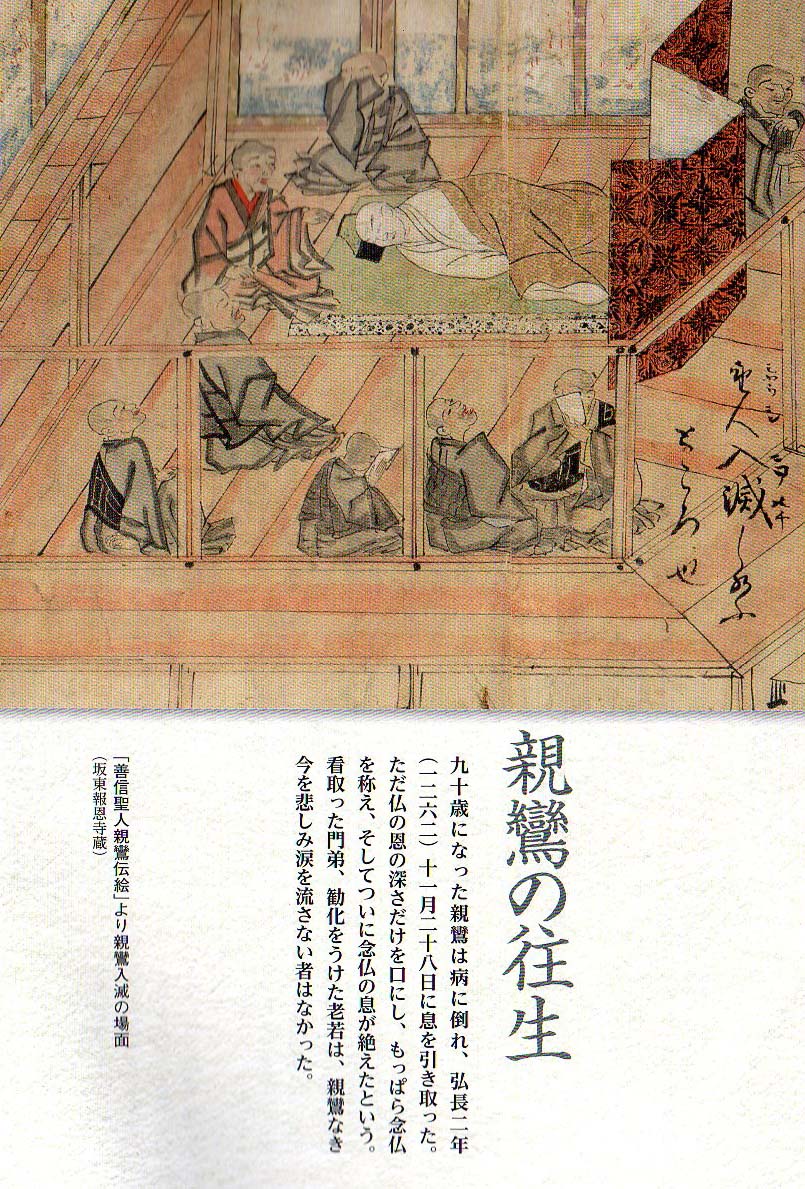 聖人入滅し給ふ
ところ也
親鸞の往生
九十歳になった親鸞は病に倒れ、弘長二年
（一二六二）十一月二十八日に息を引き取った。
ただ仏の恩の深さだけを口にし、もっぱら念仏
を称え、そしてついに念仏の息が絶えたという。
看取った門弟、勧化をうけた老若は、親鸞なき
今を悲しみ涙を流さない者はなかった。
「善信聖人親鸞伝絵」より親鸞入滅の場面
（坂東報恩寺蔵）